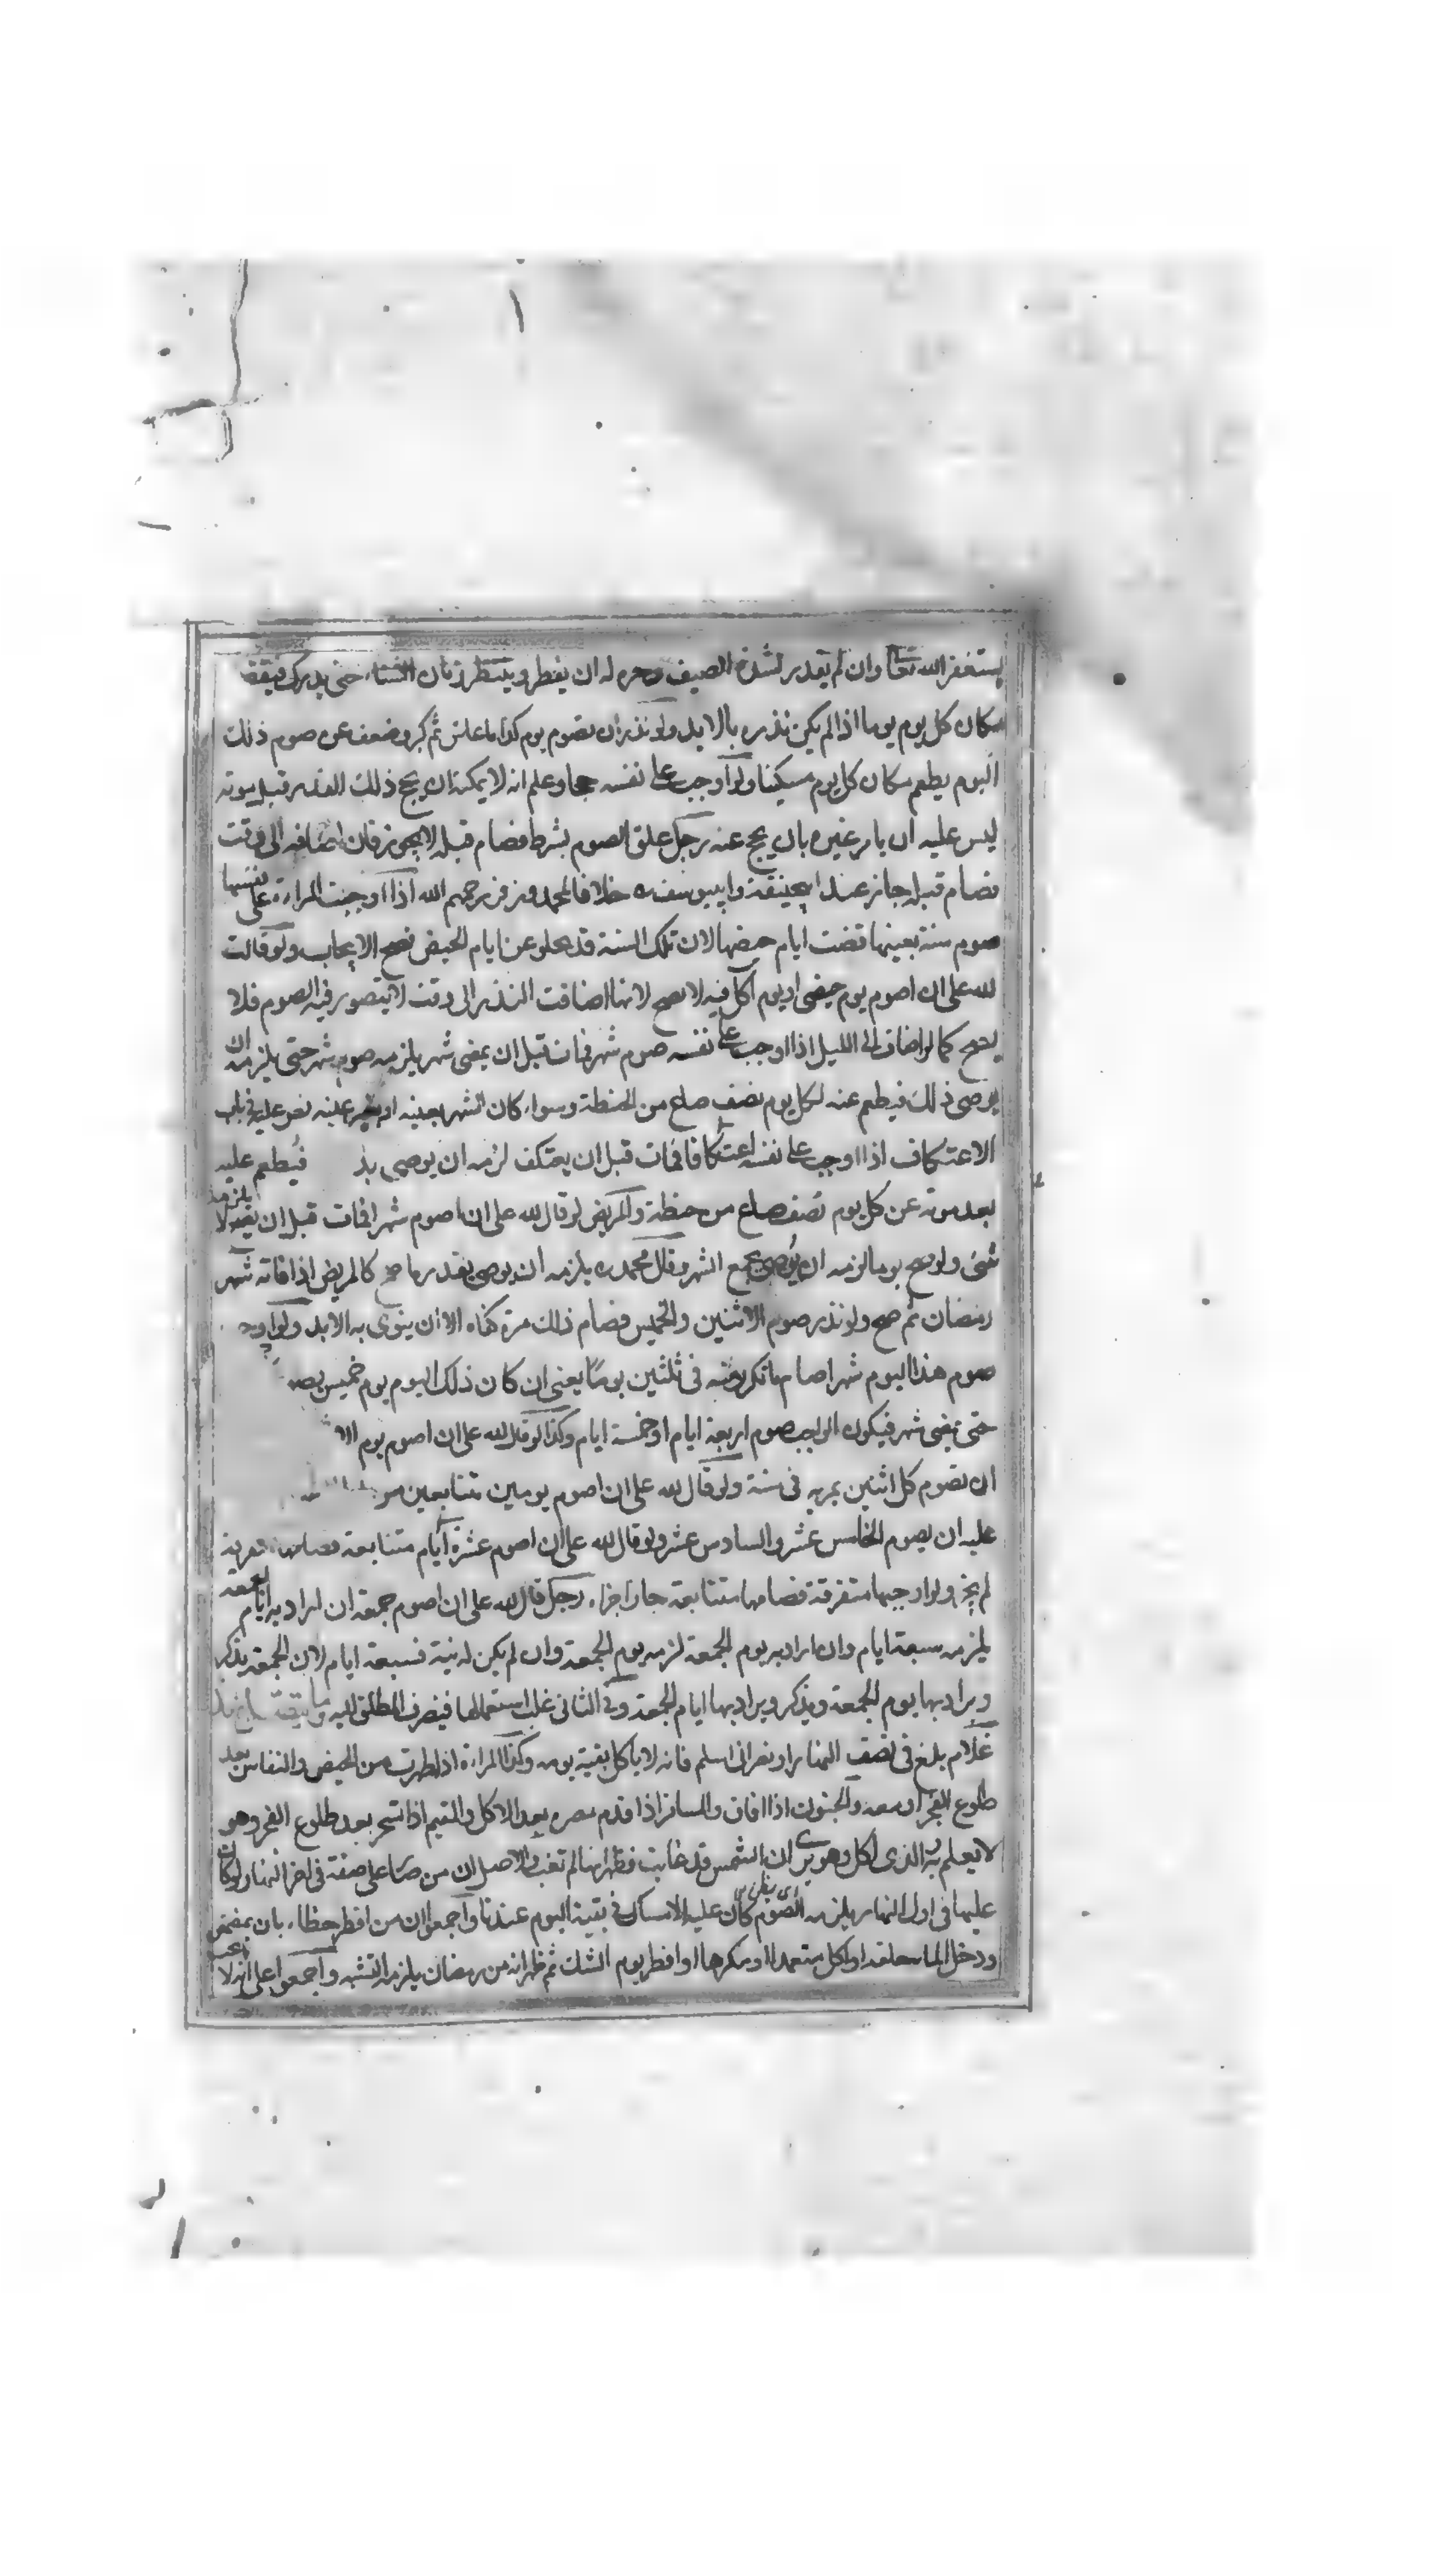 يستغفر الله تعا وان لم يقدر لشدة الصيف وحره له ان يفطر وينتظر زمان الشتاء حتى يدرك فيقضه
مكان كل يوم يوما اذا لم يكن نذره بالابد ولو نذر ان يصوم يوم كذا ما عاش ثم كبر وضعف عن صوم ذلك
اليوم يطعم مكان كل يوم مسكينا ولو اوجب على نفسه حجا وعلم انه لا يمكنه ان يحج ذلك القدر قبل موته
ليس عليه ان يامر غيره بان يحج عنه رجل علق الصوم بشرط فصام قبله لا يجوز فان اضافه الى وقت
فصام قبله جاز عند ابيحنيفة وابييوسف خلافا لمحمد وزفر رحمهم الله اذا اوجبت المراءة على نفسها
صوم سنة بعينها قضت ايام حيضها لان تلك السنة قد يخلو عن ايام الحيض فصح الايجاب ولو قالت
لله على ان اصوم يوم حيضى او يوم اكل فيه لا يصح لانها اضافت النذر الى وقت لا يتصور فيه الصوم فلا
يصح كما لو اضاف الى الليل اذا اوجب على نفسه صوم شهر فمات قبل ان يمضى شهر يلزمه صوم شهر حتى يلزمه ان
يوصى ذلك فيطعم عنه لكل يوم نصف صاع من الحنطة وسواء كان الشهر بعينه او بغير عينه نص عليه فى باب
الاعتكاف اذا اوجب على نفسه اعتكافا فمات قبل ان يعتكف لزمه ان يوصى فيطعم عليه
بعد موته عن كل يوم نصف صاع من حنطة والمريض لو قال لله على ان اصوم شهرا فمات قبل ان يصح لا يلزمه
شىء ولو صح يوما لزمه ان يوصى بجميع الشهر وقال محمد ره يلزمه ان يوصى بقدر ما صح كالمريض اذا فاته شهر
رمضان ثم صح ولو نذر صوم الاثنين والخميس فصام ذلك مرة كفاه الا ان ينوى به الابد ولو
صوم هذا اليوم شهرا صام ما تكرر منه فى ثلثين يوما يعنى ان كان ذلك اليوم يوم خميس
حتى يمضى شهر فيكون الواجب صوم اربعة ايام او خمسة ايام وكذا لو قال لله على ان اصوم يوم
ان يصوم كل اثنين يمر به فى سنة ولو قال لله على ان اصوم يومين متتابعين من
عليه ان يصوم الخامس عشر والسادس عشر ولو قال لله على ان اصوم عشرة ايام متتابعة فصامها متفرقة
لم يجز ولو اوجبها متفرقة فصامها متتابعة جاز اجزاء رجل قال لله على ان اصوم جمعة ان اراد به ايام الجمعة
يلزمه سبعة ايام وان اراد به يوم الجمعة لزمه يوم الجمعة وان لم يكن له نية فسبعة ايام لان الجمعة يذكر
ويراد بها يوم الجمعة ويذكر ويراد بها ايام الجمعة وفى الثانى غلب استعمالها فينصرف المطلق اليه
غلام بلغ فى نصف النهار او نصرانى اسلم فانه لا ياكل بقية يومه وكذا المراءة اذا طهرت من الحيض والنفاس بعد
طلوع الفجر او معه والمجنون اذا افاق والمسافر اذا قدم مصره بعد الاكل والمقيم اذا تسحر بعد طلوع الفجر وهو
لا يعلم به والذى اكل وهو يرى ان الشمس قد غابت فظهر انها لم تغب والاصل ان من صار على صفة فى اخر النهار ولو كان
عليها فى اول النهار يلزمه الصوم كان عليه الامساك فى بقية اليوم عندنا واجمعوا ان من افطر خطاء بان تمضمض
ودخل الماء حلقه او اكل متعمدا او مكرها او افطر يوم الشك ثم ظهر انه من رمضان يلزمه التشبه واجمعوا على انه لا